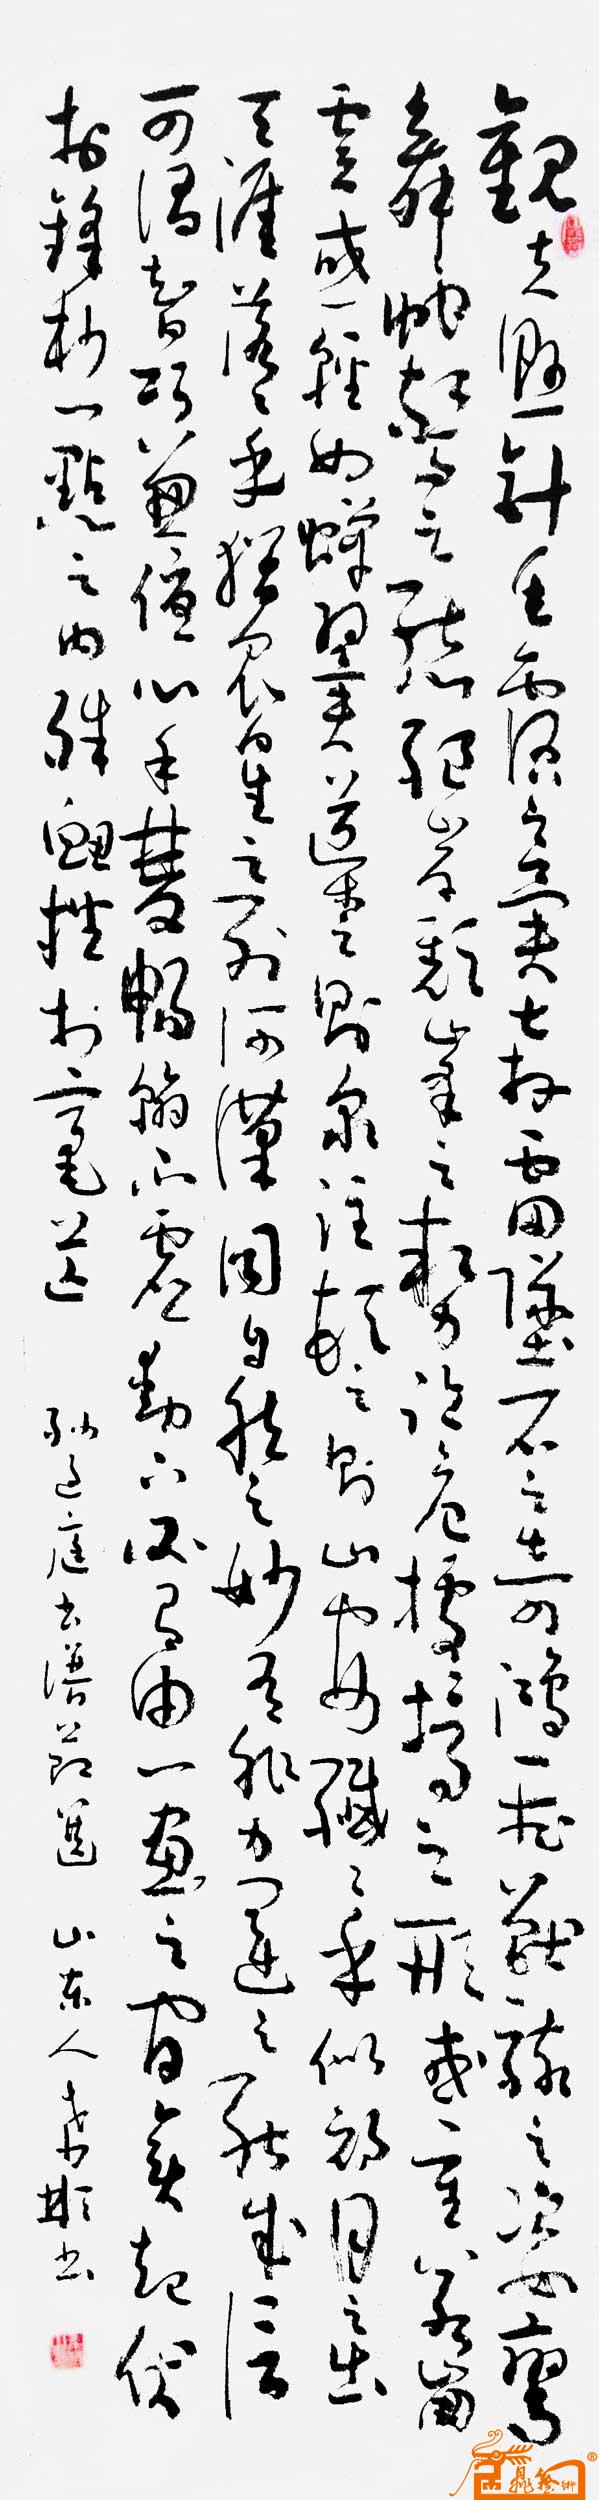 觀夫懸針垂露之異奔雷墜石之奇鴻飛獸駭之姿鸞
舞蛇驚之態絕岸頹峯之勢臨危據槁之形或重若崩
雲或輕如蟬翼導之則泉注頓之則山安纖〻乎似初月之出
天涯落〻乎猶眾星之列河漢同自然之妙有非力運之能成信
可謂智巧兼優心手雙暢翰不虛動下必有由一畫之間變起伏
於鋒杪一點之內殊衄挫於毫芒
孫過庭書譜節選 山東人